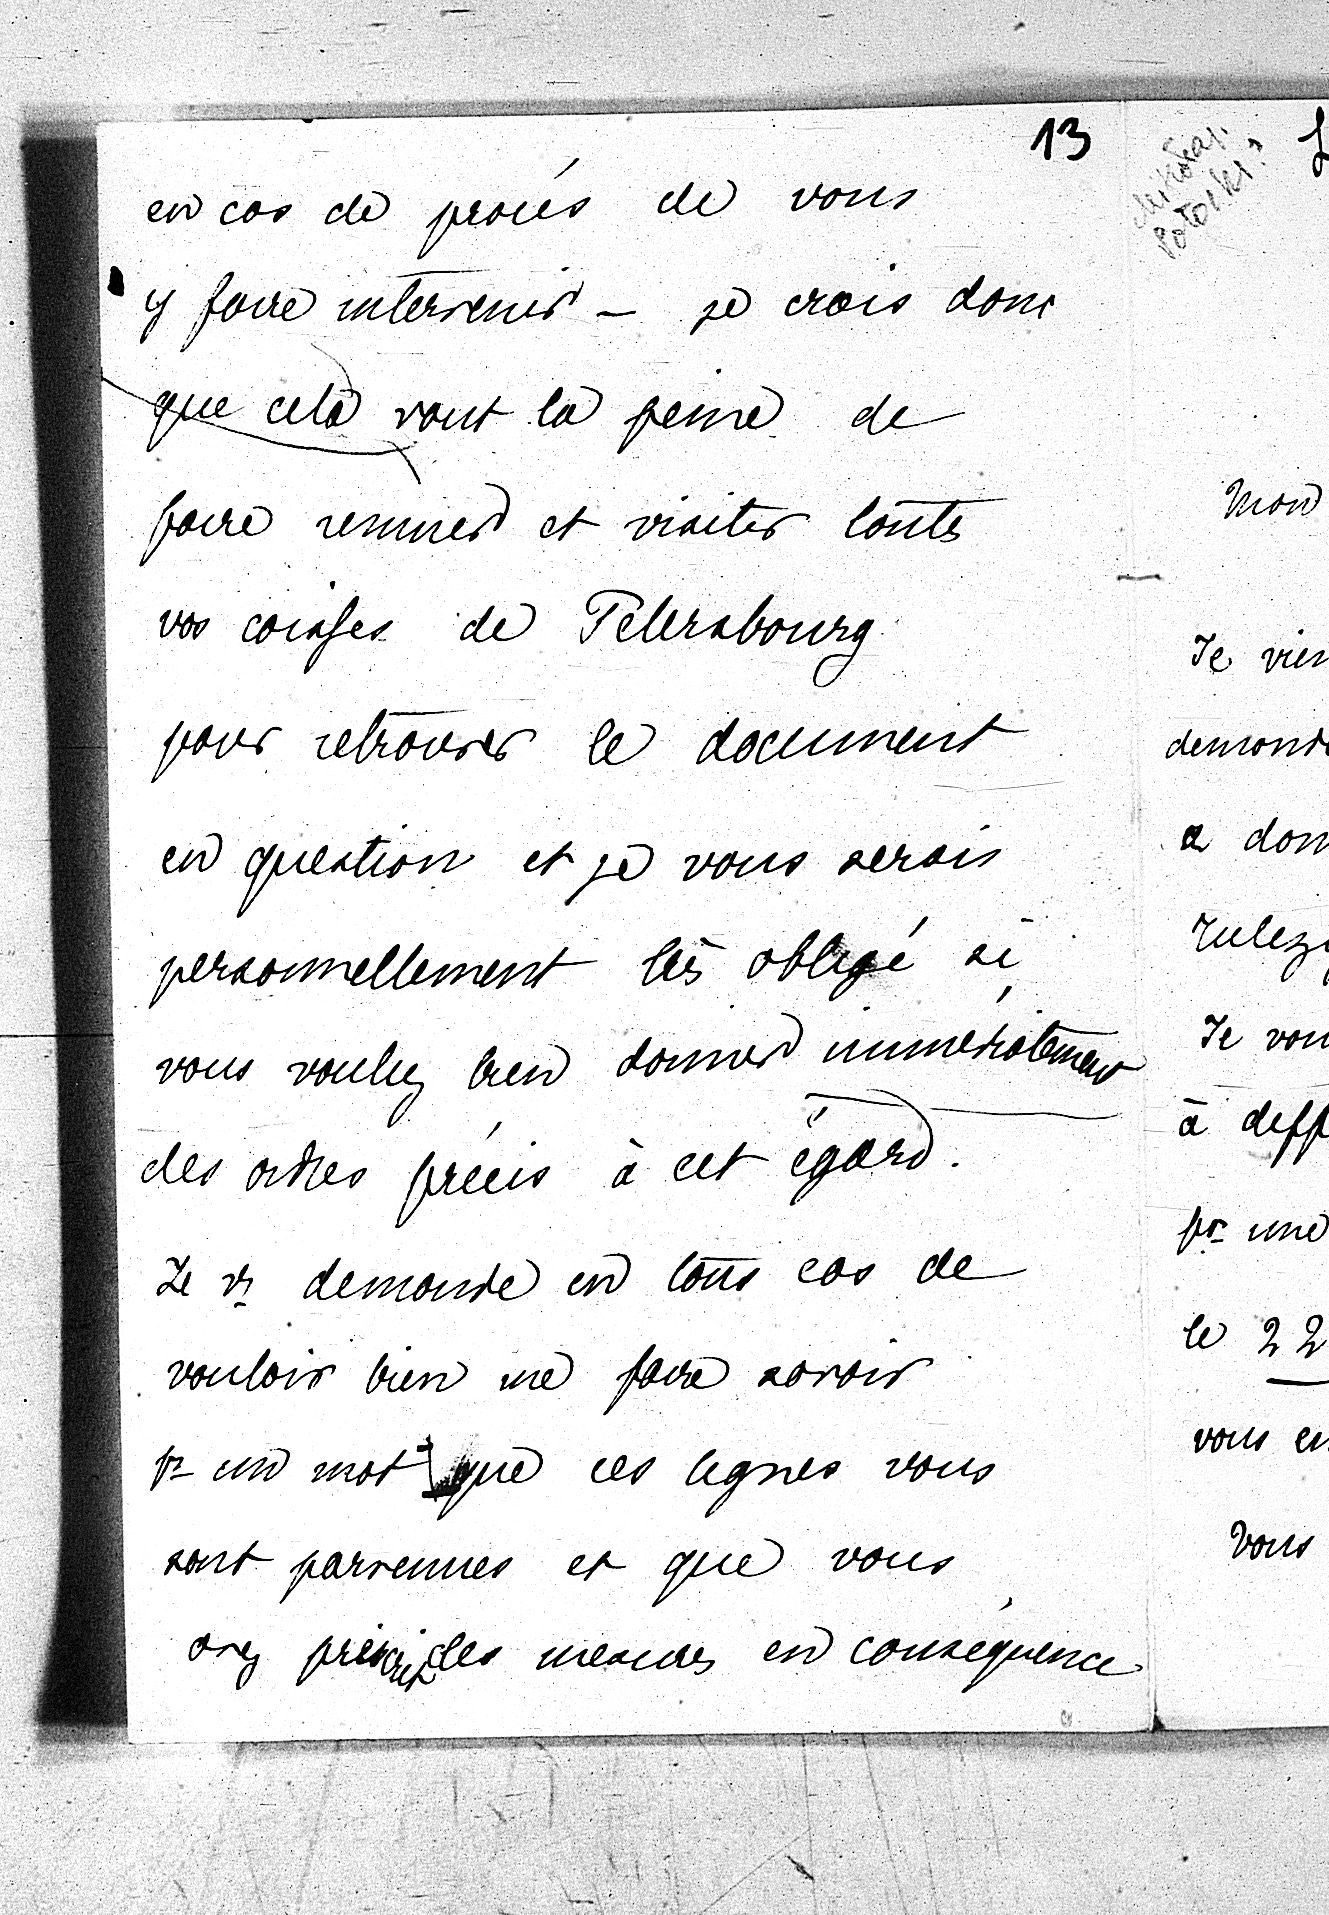 13
en cas de procés de vous
y faire intervenir – je crois donc
que celà vaut la peine de
faire remuer et visiter toutes
vos caisses de Petersbourg
pour retrouver le document
en question et je vous serais
personnellement très obligé si
vous vouliez bien donner immédiatement
des ordres précis à cet égard.
Je vs demande en tous cas de
vouloir bien me faire savoir
pr un mot que ces lignes vous
sont parvenues et que vous
avez prescrit des mesures en conséquence
Mikołaj
Potocki?
Mon
Je vien
demande
a don
Je vou
à diff
pr une
le 22
vous en
Vous